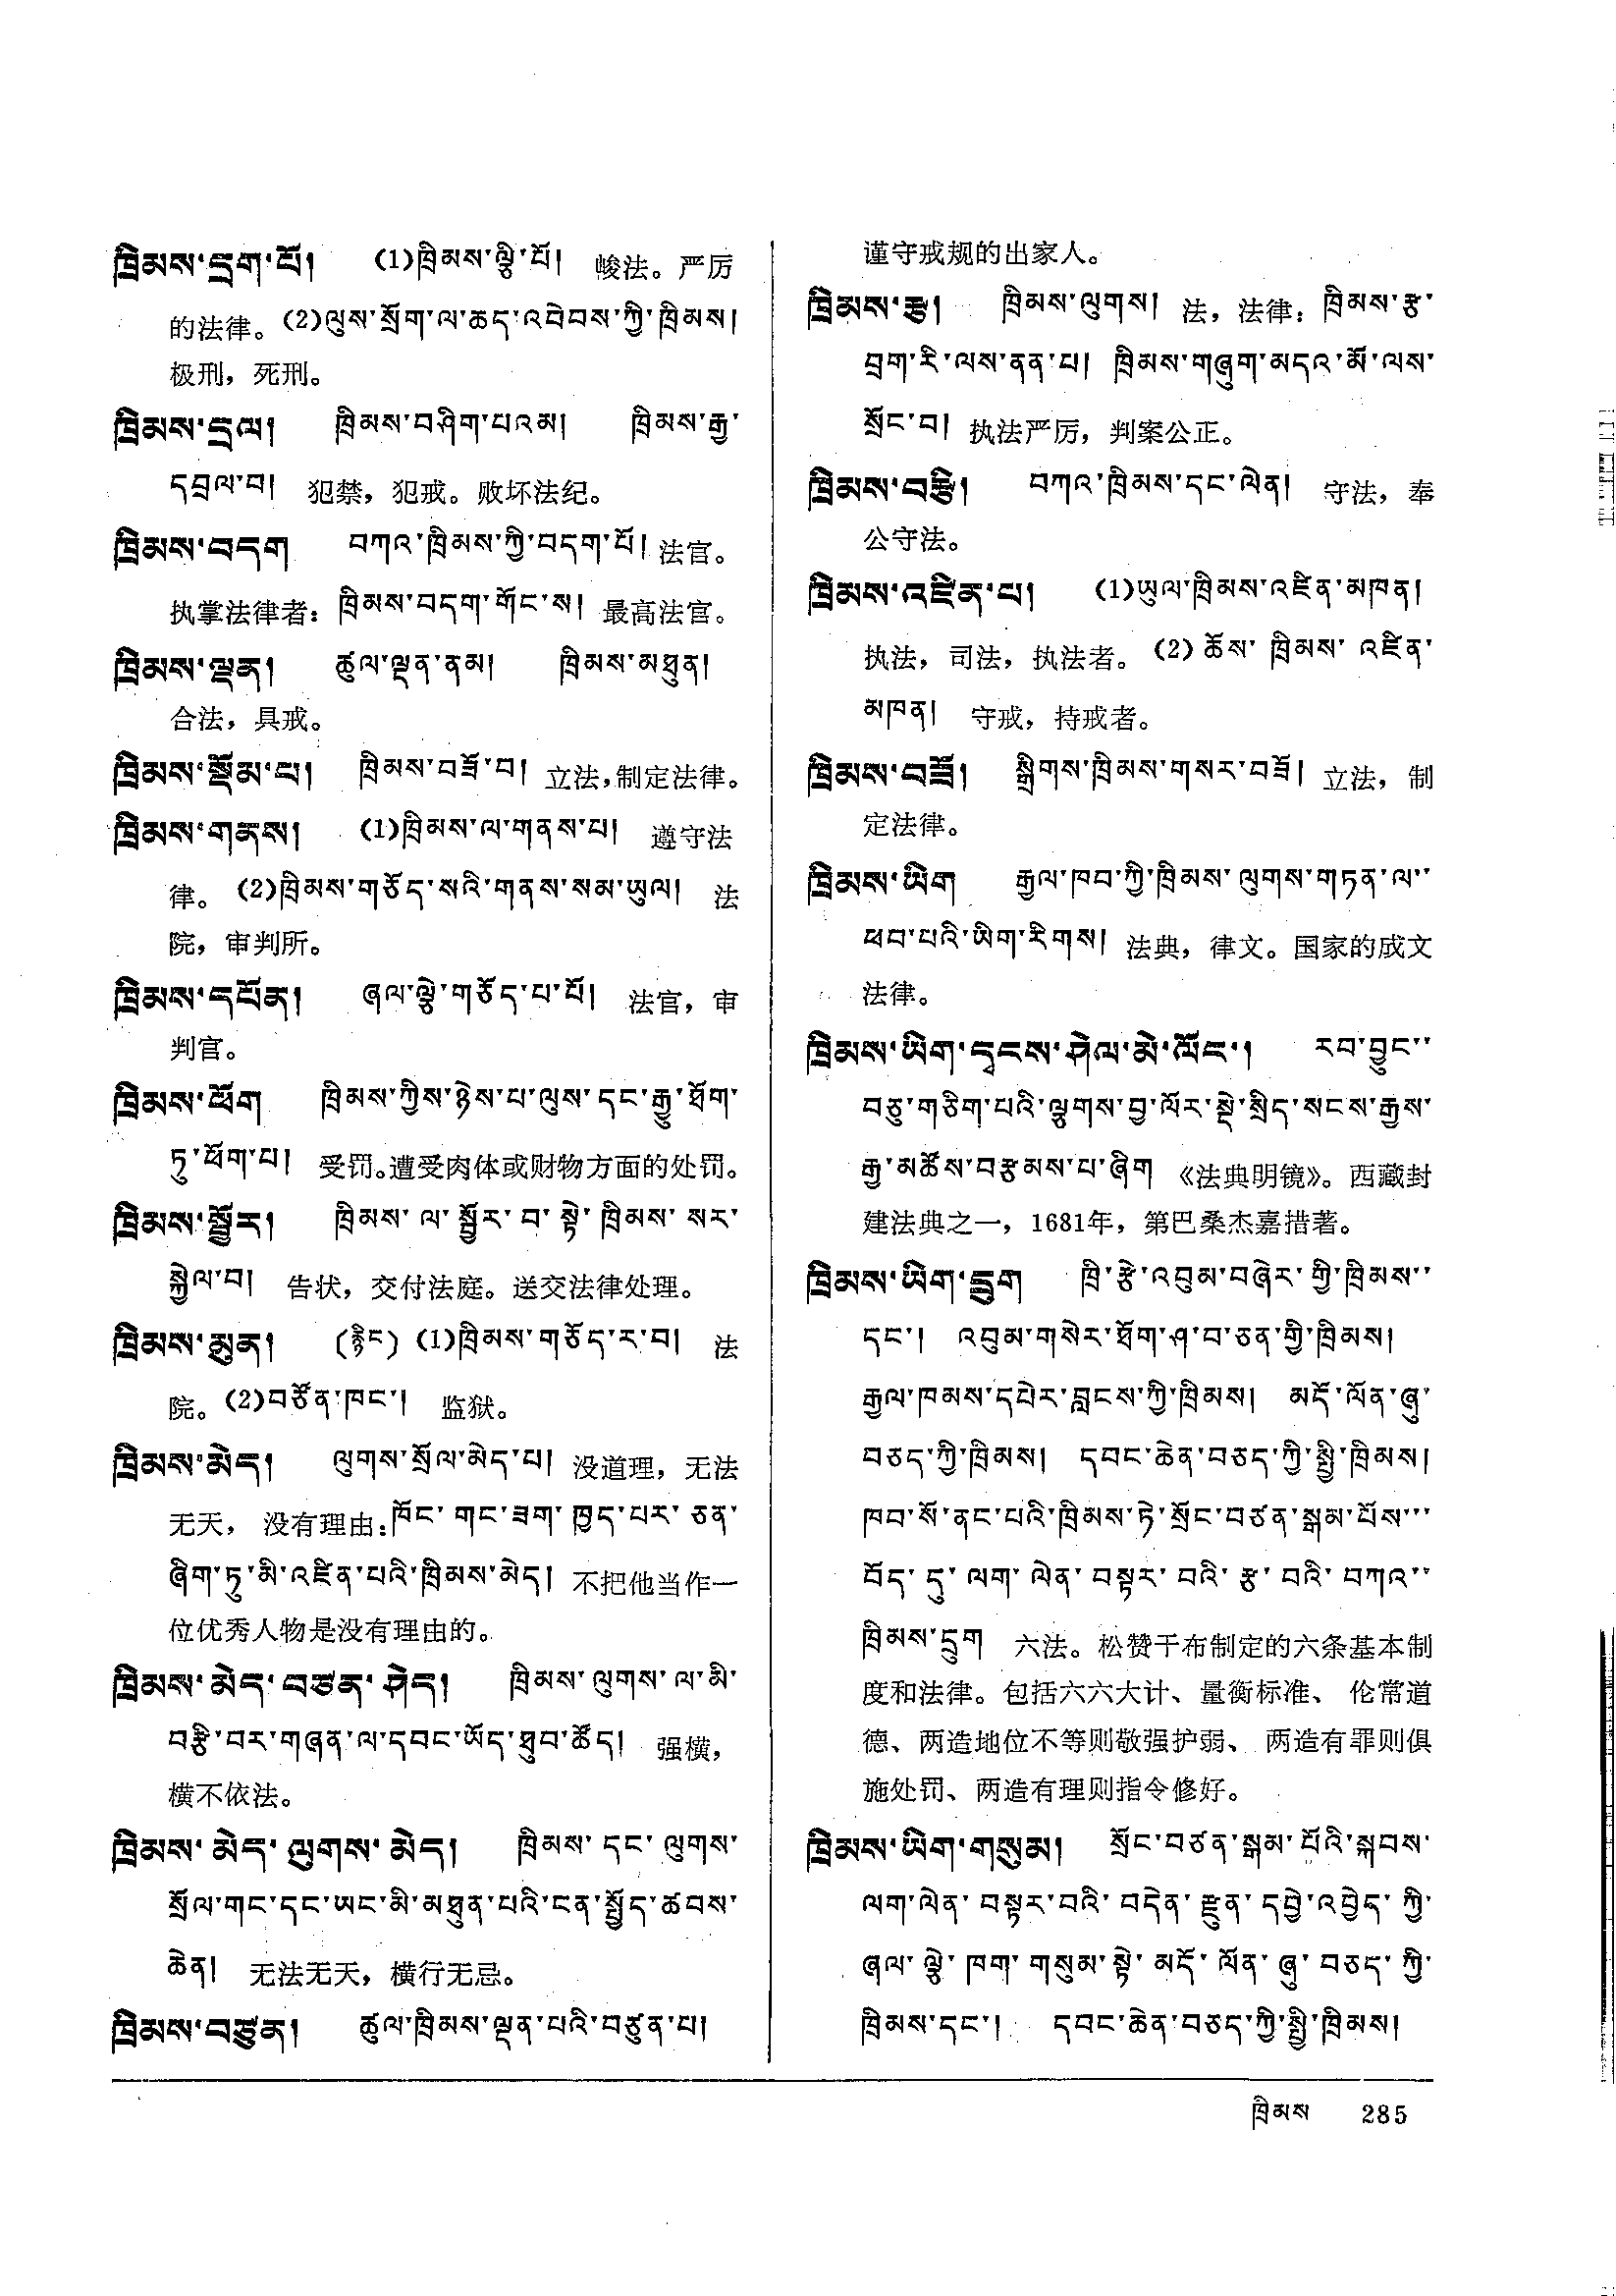 ཁྲིམས་དྲག་པོ། (1)ཁྲིམས་ལྕི་པོ། 峻法。严厉
的法律。(2)ལུས་སྲོག་ལ་ཆད་འབེབས་ཀྱི་ཁྲིམས།
极刑，死刑。
ཁྲིམས་དྲལ། ཁྲིམས་བཤིག་པའམ། ཁྲིམས་རྒྱ་
དབྲལ་བ། 犯禁，犯戒。败坏法纪。
ཁྲིམས་བདག བཀའ་ཁྲིམས་ཀྱི་བདག་པོ། 法官。
执掌法律者：ཁྲིམས་བདག་གོང་ས། 最高法官。
ཁྲིམས་ལྡན། ཚུལ་ལྡན་ནམ། ཁྲིམས་མཐུན།
合法，具戒。
ཁྲིམས་སྡོམ་པ། ཁྲིམས་བཟོ་བ། 立法，制定法律。
ཁྲིམས་གནས། (1)ཁྲིམས་ལ་གནས་པ། 遵守法
律。(2)ཁྲིམས་གཅོད་སའི་གནས་སམ་ཡུལ། 法
院，审判所。
ཁྲིམས་དཔོན། ཞལ་ལྕེ་གཅོད་པ་པོ། 法官，审
判官。
ཁྲིམས་ཕོག ཁྲིམས་ཀྱིས་ཉེས་པ་ལུས་དང་རྒྱུ་ཐོག་
ཏུ་ཕོག་པ། 受罚。遭受肉体或财物方面的处罚。
ཁྲིམས་སྦྱོར། ཁྲིམས་ལ་སྦྱོར་བ་སྟེ་ཁྲིམས་སར་
སྐྱེལ་བ། 告状，交付法庭。送交法律处理。
ཁྲིམས་མུན། (རྙིང) (1)ཁྲིམས་གཅོད་ར་བ། 法
院。(2)བཙོན་ཁང་། 监狱。
ཁྲིམས་མེད། ལུགས་སྲོལ་མེད་པ། 没道理，无法
无天，没有理由：ཁོང་གང་ཟག་ཁྱད་པར་ཅན་
ཞིག་ཏུ་མི་འཛིན་པའི་ཁྲིམས་མེད། 不把他当作一
位优秀人物是没有理由的。
ཁྲིམས་མེད་བཙན་ཤེད། ཁྲིམས་ལུགས་ལ་མི་
བརྩི་བར་གཞན་ལ་དབང་ཡོད་ཐུབ་ཚོད། 强横，
横不依法。
ཁྲིམས་མེད་ལུགས་མེད། ཁྲིམས་དང་ལུགས་
སྲོལ་གང་དང་ཡང་མི་མཐུན་པའི་ངན་སྤྱོད་ཚབས་
ཆེན། 无法无天，横行无忌。
ཁྲིམས་བཙུན། ཚུལ་ཁྲིམས་ལྡན་པའི་བཙུན་པ།
谨守戒规的出家人。
ཁྲིམས་རྩ། ཁྲིམས་ལུགས། 法，法律：ཁྲིམས་རྩ་
བྲག་རི་ལས་ནན་པ། ཁྲིམས་གཞུག་མདའ་མོ་ལས་
སྲོང་བ། 执法严厉，判案公正。
ཁྲིམས་བརྩི། བཀའ་ཁྲིམས་དང་ལེན། 守法，奉
公守法。
ཁྲིམས་འཛིན་པ། (1)ཡུལ་ཁྲིམས་འཛིན་མཁན།
执法，司法，执法者。(2)ཆོས་ཁྲིམས་འཛིན་
མཁན། 守戒，持戒者。
ཁྲིམས་བཟོ། སྒྲིགས་ཁྲིམས་གསར་བཟོ། 立法，制
定法律。
ཁྲིམས་ཡིག རྒྱལ་ཁབ་ཀྱི་ཁྲིམས་ལུགས་གཏན་ལ་་
ཕབ་པའི་ཡིག་རིགས། 法典，律文。国家的成文
法律。
ཁྲིམས་ཡིག་དྭངས་ཤེལ་མེ་ལོང་། རབ་བྱུང་་
བཅུ་གཅིག་པའི་ལྕགས་བྱ་ལོར་སྡེ་སྲིད་སངས་རྒྱས་
རྒྱ་མཚོས་བརྩམས་པ་ཞིག 《法典明镜》。西藏封
建法典之一，1681年，第巴桑杰嘉措著。
ཁྲིམས་ཡིག་དྲུག ཁྲི་རྩེ་འབུམ་བཞེར་གྱི་ཁྲིམས་་
དང་། འབུམ་གསེར་ཐོག་ཤ་བ་ཅན་གྱི་ཁྲིམས།
རྒྱལ་ཁམས་དཔེར་བླངས་ཀྱི་ཁྲིམས། མདོ་ལོན་ཞུ་
བཅད་ཀྱི་ཁྲིམས། དབང་ཆེན་བཅད་ཀྱི་སྤྱི་ཁྲིམས།
ཁབ་སོ་ནང་པའི་ཁྲིམས་ཏེ་སྲོང་བཙན་སྒམ་པོས་་་
བོད་དུ་ལག་ལེན་བསྟར་བའི་རྩ་བའི་བཀའ་་
ཁྲིམས་དྲུག 六法。松赞干布制定的六条基本制
度和法律。包括六六大计、量衡标准、伦常道
德、两造地位不等则敬强护弱、两造有罪则俱
施处罚、两造有理则指令修好。
ཁྲིམས་ཡིག་གསུམ། སྲོང་བཙན་སྒམ་པོའི་སྐབས་
ལག་ལེན་བསྟར་བའི་བདེན་རྫུན་དབྱེ་འབྱེད་ཀྱི་
ཞལ་ལྕེ་ཁག་གསུམ་སྟེ་མདོ་ལོན་ཞུ་བཅད་ཀྱི་
ཁྲིམས་དང་། དབང་ཆེན་བཅད་ཀྱི་སྤྱི་ཁྲིམས།
ཁྲིམས 285